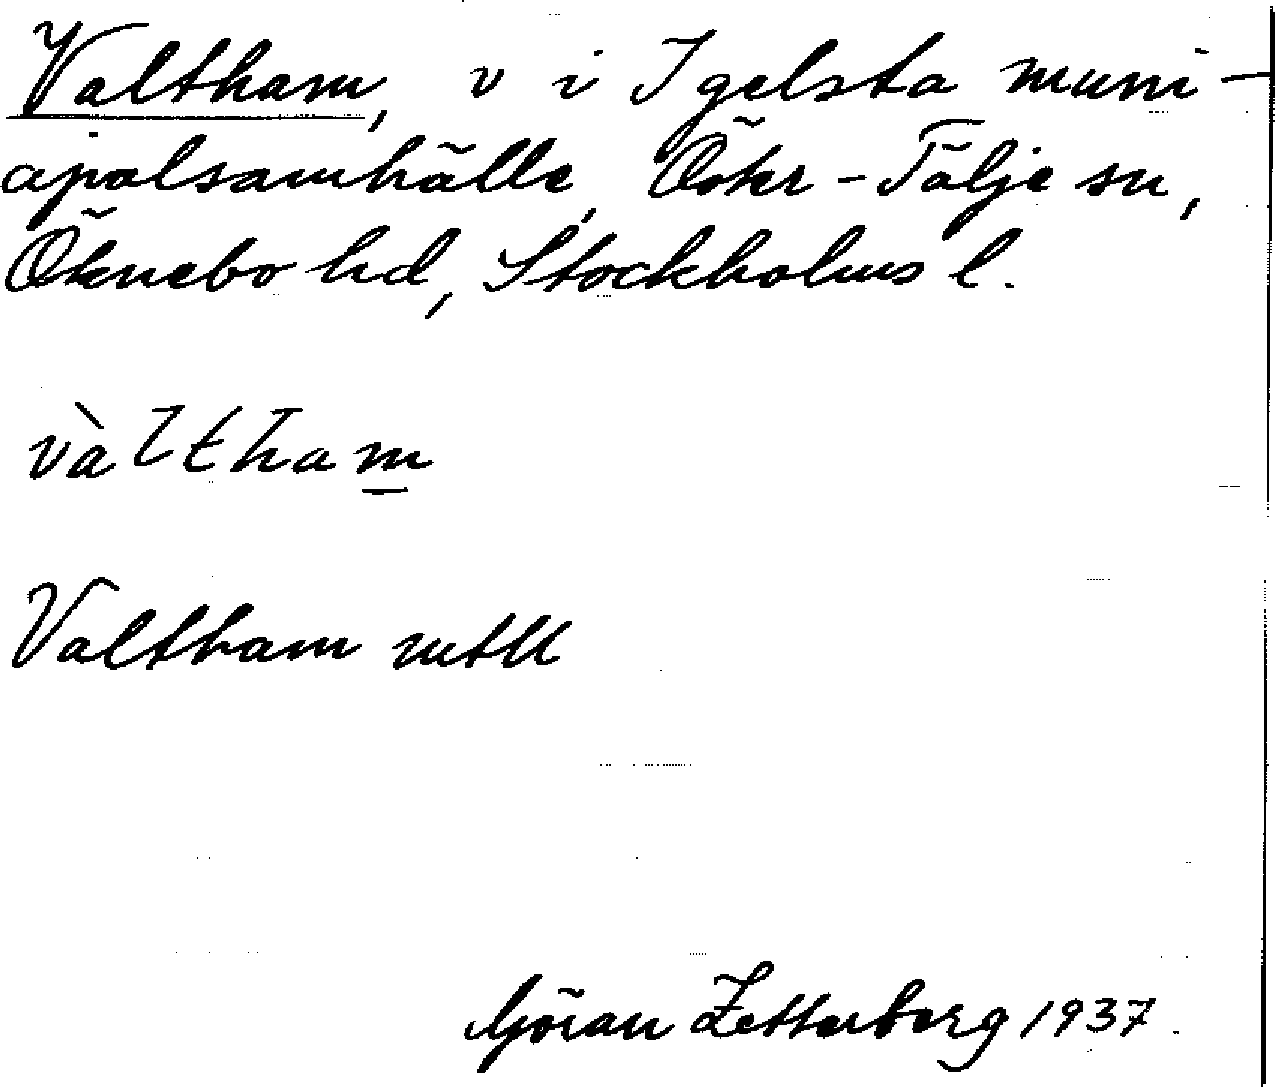 Valtham, v i Igelsta muni-
cipalsamhälle, Östr-Tälje sn,
Öknebo hd, Stockholms l.
vàltham
Valtham mtll
Göran Zetterberg 1937.